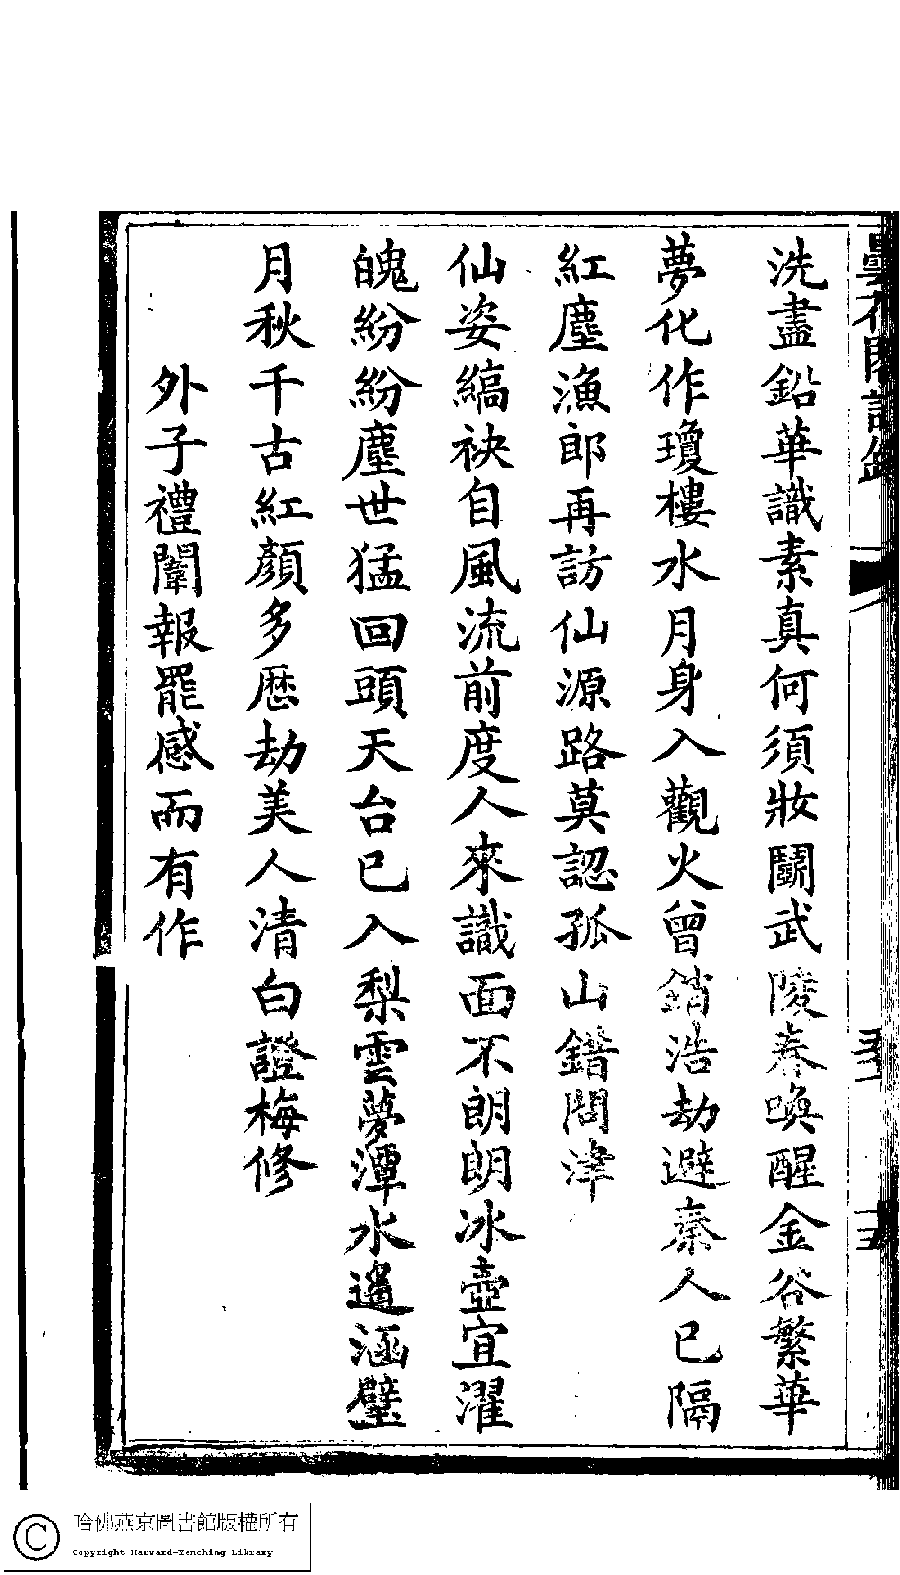 曇花閣詩鈔
洗盡鉛華識素真何須妝鬭武陵春喚醒金谷繁華
夢化作瓊樓水月身入觀火曾銷浩劫避秦人已隔
紅塵漁郎再訪仙源路莫認孤山錯問津
仙姿縞袂自風流前度人來識面不朗朗冰壺宜濯
魄紛紛塵世猛回頭天台已入梨雲夢潭水遙涵璧
月秋千古紅顏多歷劫美人清白證梅修
外子禮闈報罷感而有作
哈佛燕京圖書館版權所有
Copyright Harvard-Yenching Library